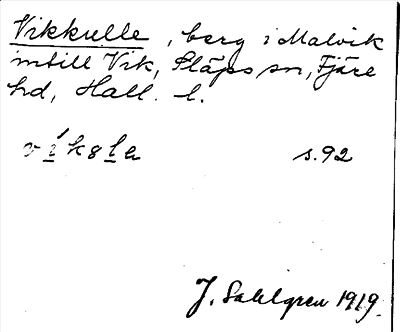 Vikkulle, berg i Malvik
intill Vik, Släps sn, Fjäre
hd, Hall. l.
víksla s.92
J. Sahlgren 1919.